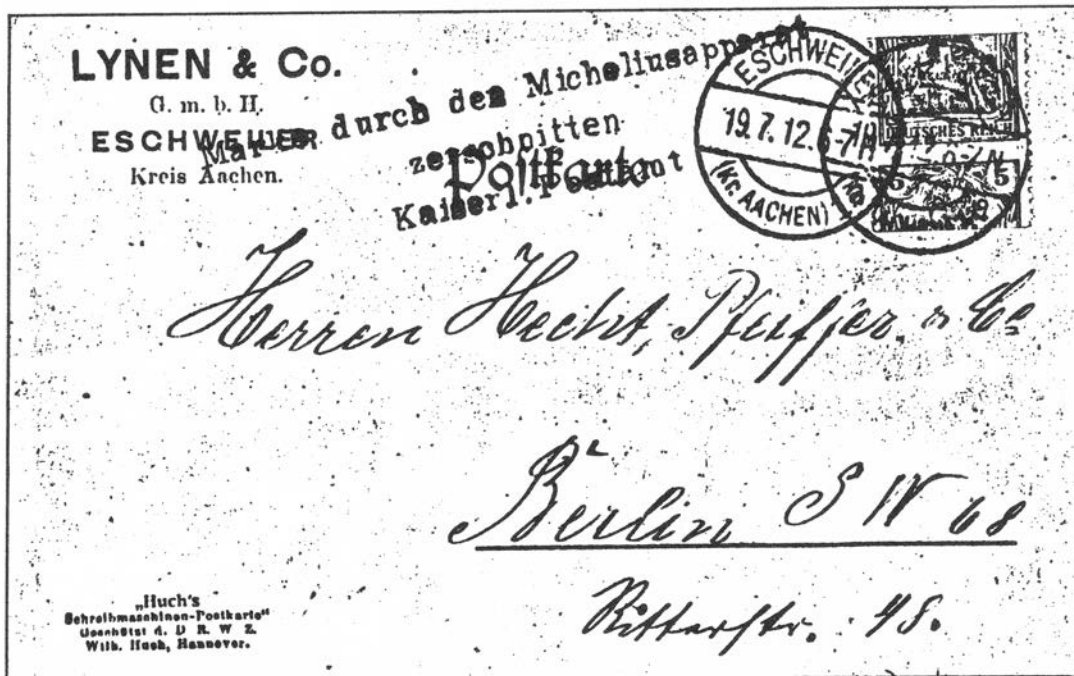 LYNEN & Co.
G. m. b. H.
ESCHWEILER
Kreis Aachen.
Marke durch den Micheliusapparat
zerschnitten
Kaiserl. Postamt
Postkarte
ESCHWEILER
19.7.12. 6-7N
(Kr. AACHEN)
DEUTSCHES REICH
5 5
Herren Hecht, Pfeiffer & Co
Berlin S W 68
Ritterstr. 48.
„Huch's
Schreibmaschinen-Postkarte“
Geschützt d. D. R. W. Z.
Wilh. Huch, Hannover.